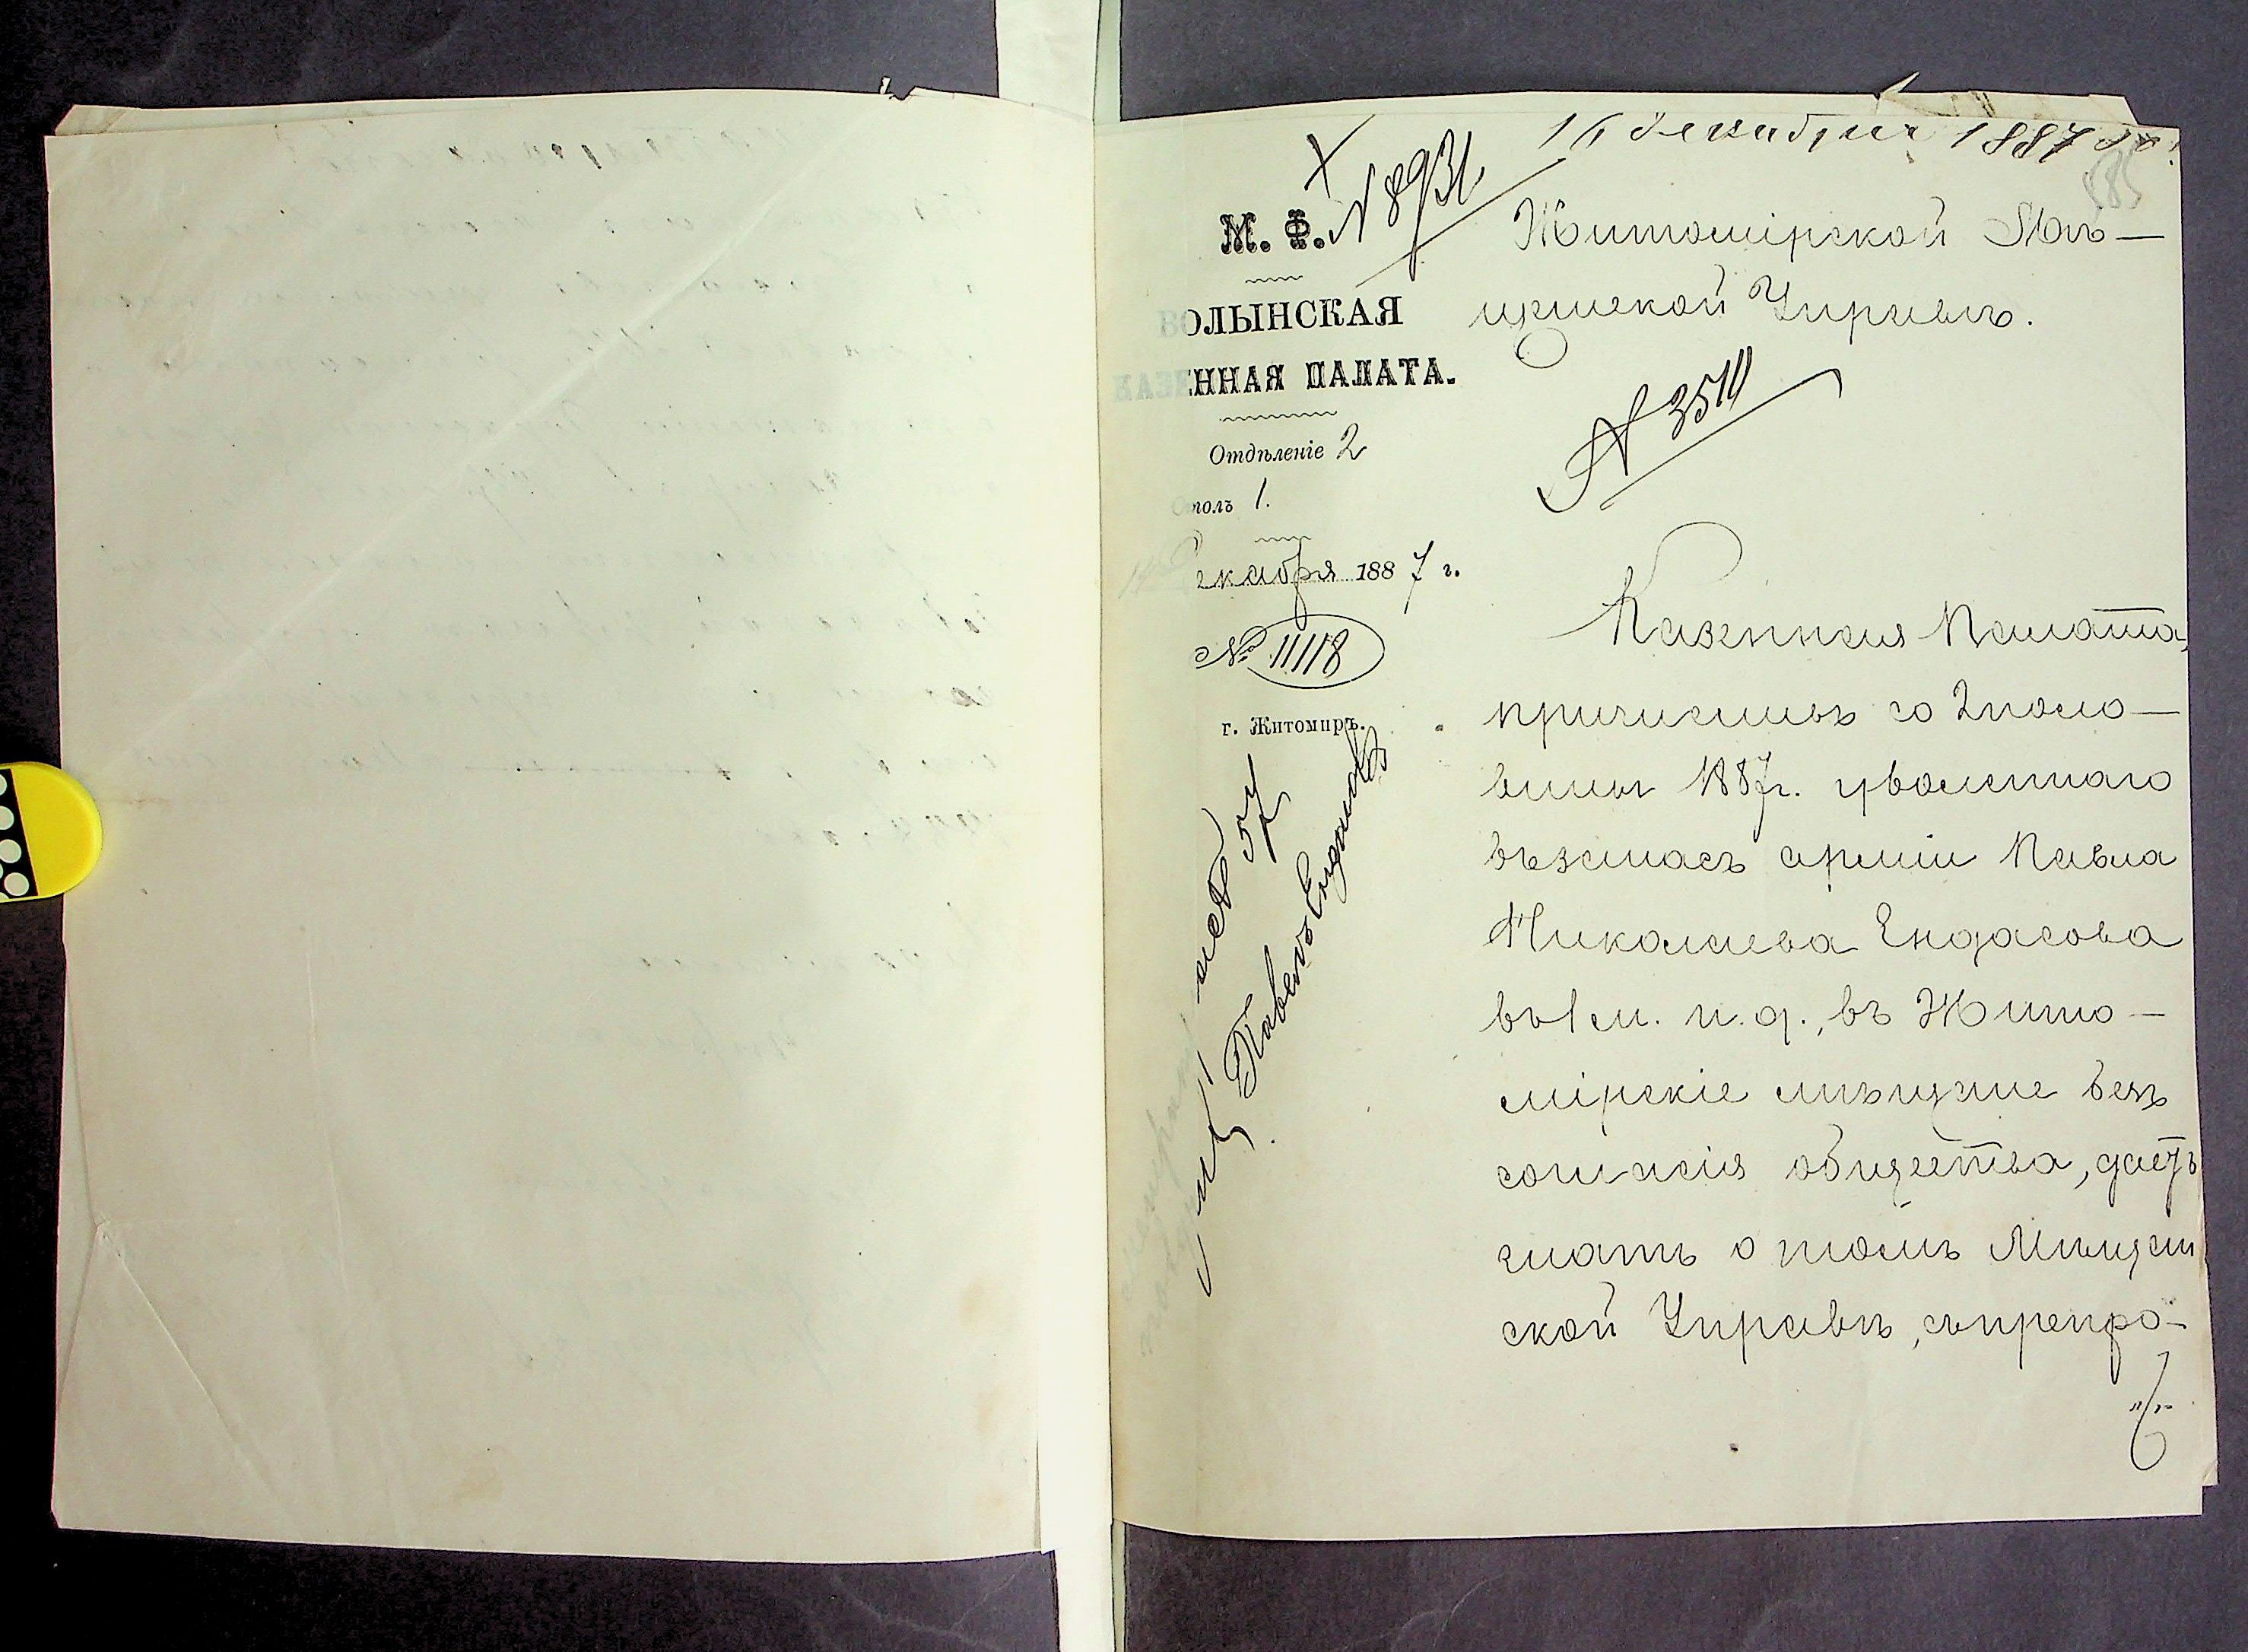 16 декабря 1887 г.
№ 8931
М. Ф.
ВОЛЫНСКАЯ
КАЗЕННАЯ ПАЛАТА.
Отдѣленіе 2
Столъ 1.
Декабря 1887 г.
№ 11118
г. Житомиръ.
Павелъ Ендасовъ
Житомірской Мѣ-
щанской Управѣ.
№ 3511
Казенная Палата,
причисливъ со 2 поло-
вины 1887 г. уволеннаго
въ запасъ арміи Павла
Николаева Ендасова
въ 1 м. п. д., въ Жито-
мірскіе мѣщане безъ
согласія общества, даетъ
знать о томъ Мѣщан
ской Управѣ, съ препро-